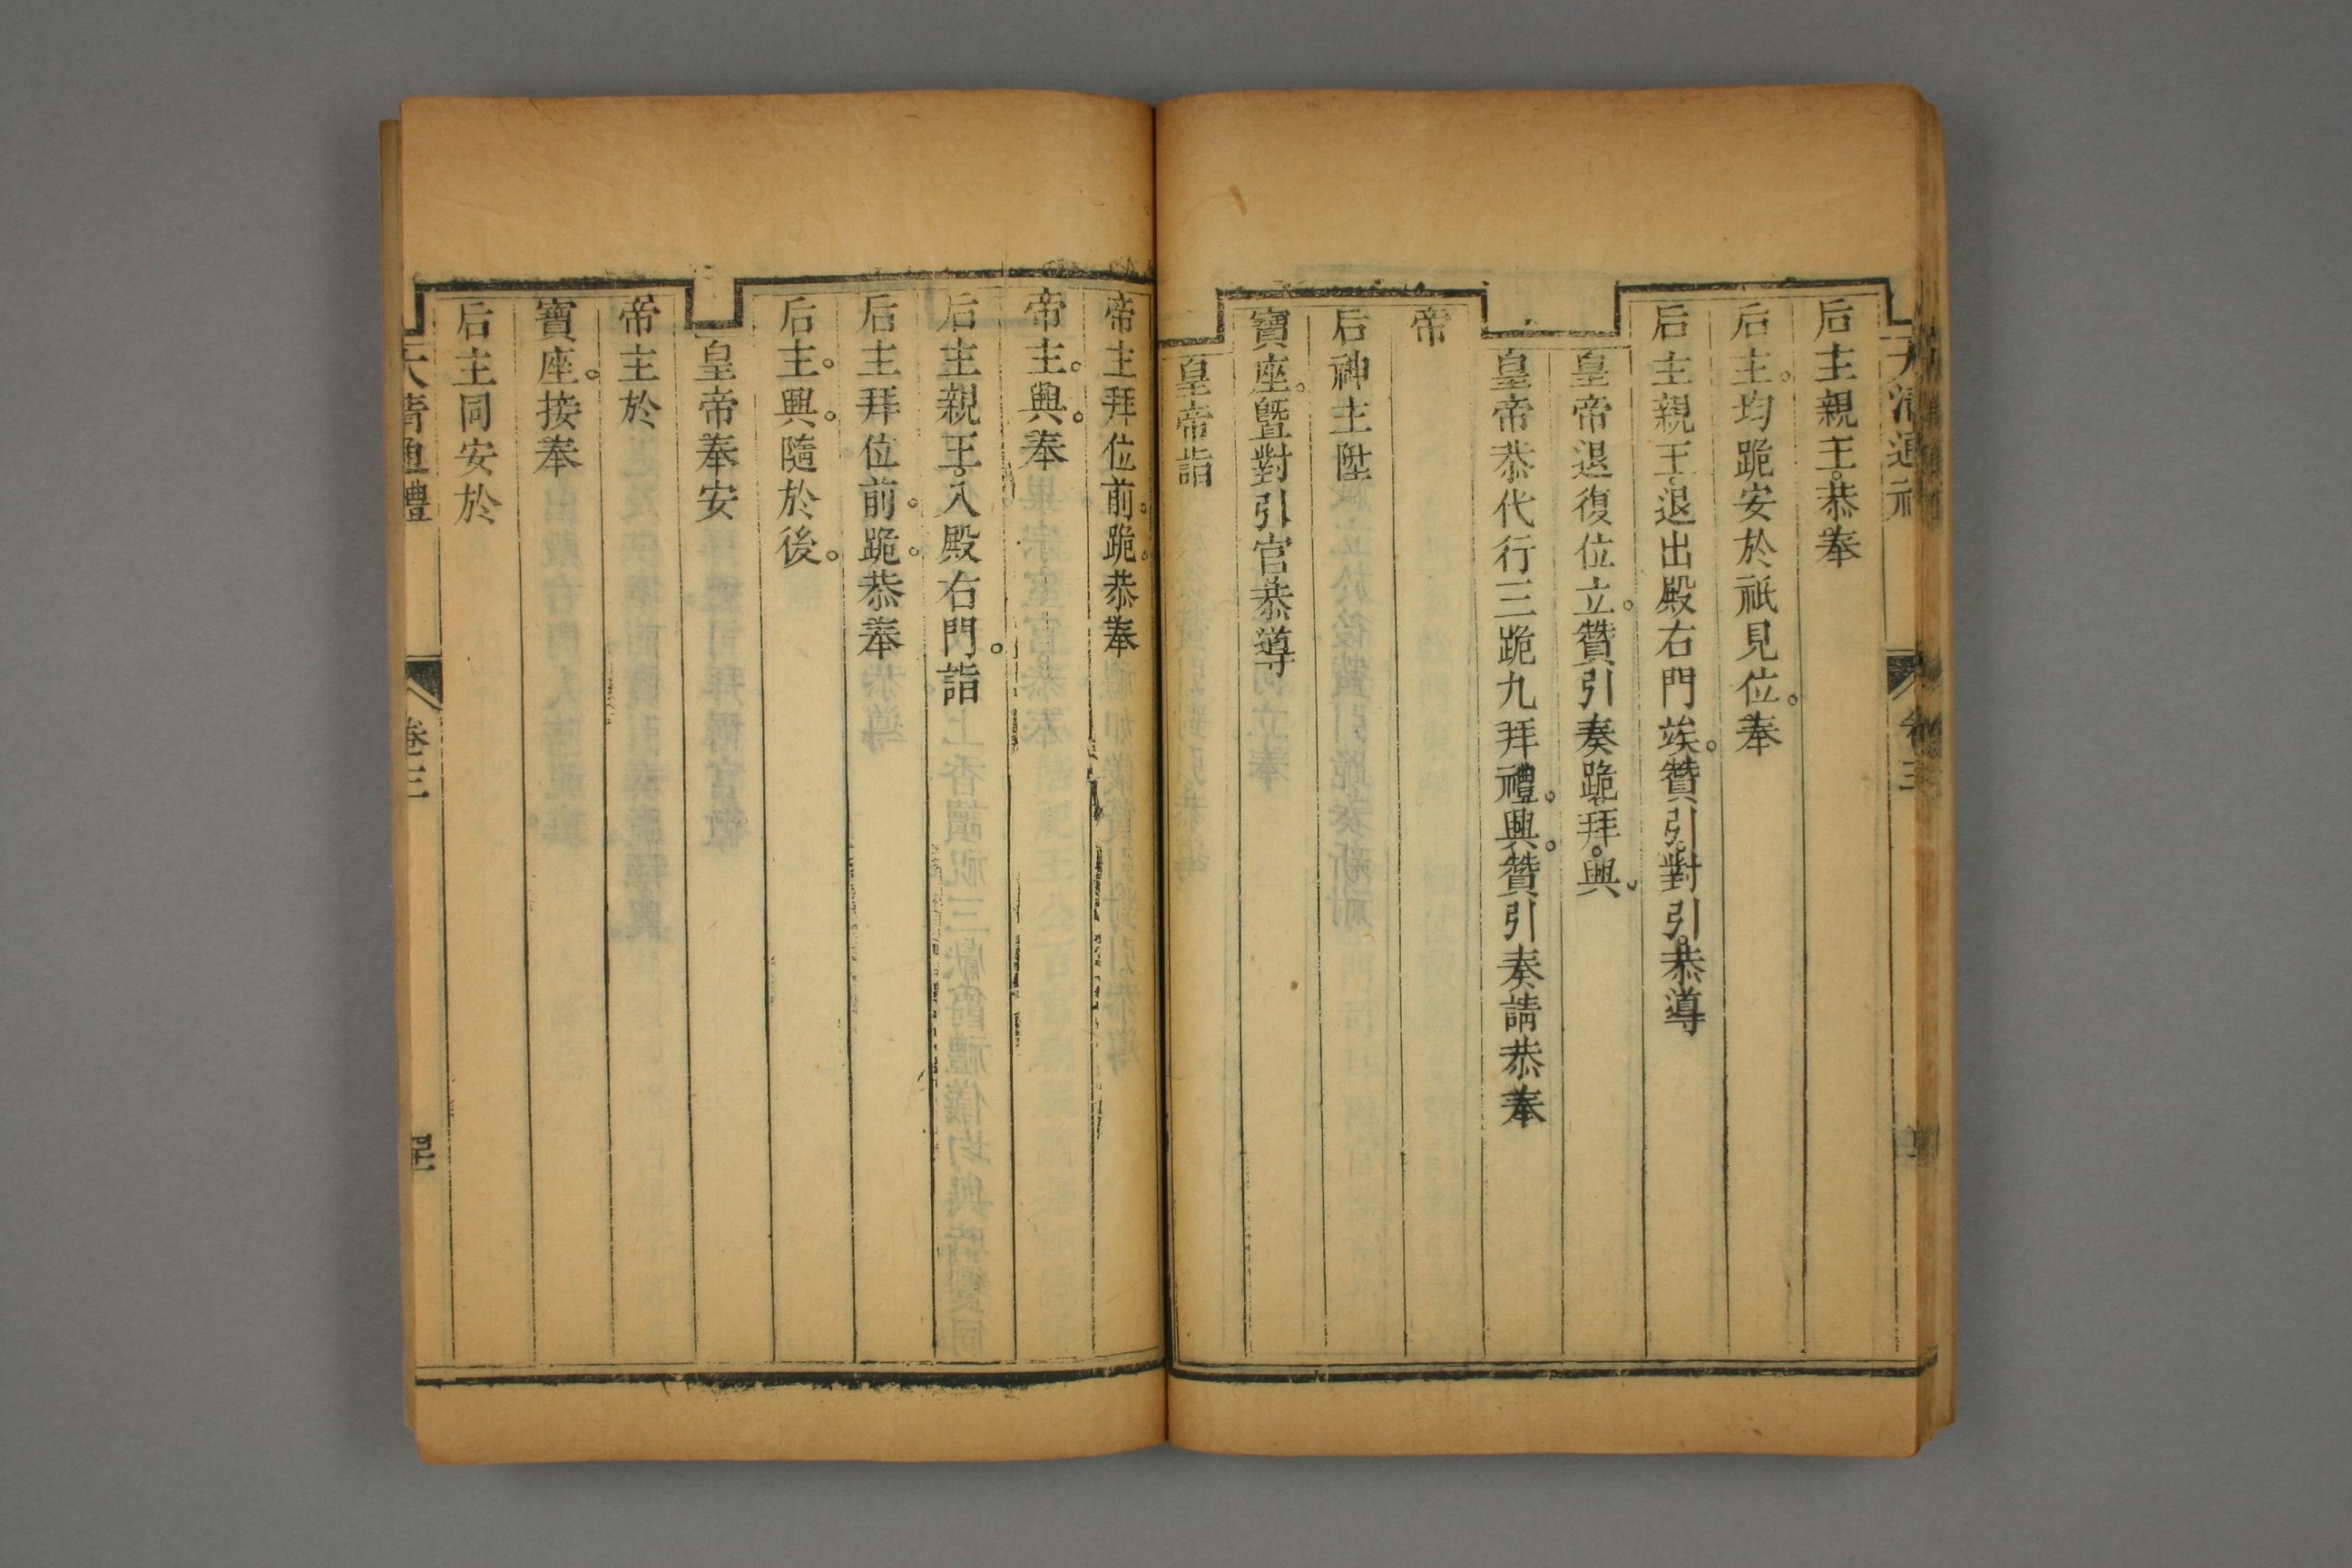 大清通禮
卷三
后主親王。恭奉
后主。均跪安於祇見位。奉
后主親王。退出殿右門竢。贊引。對引。恭導
皇帝退復位立。贊引奏跪拜。興。
皇帝恭代行三跪九拜禮。興。贊引奏請恭奉
帝
后神主陞
寶座。曁對引官恭導
皇帝詣
帝主拜位前。跪。恭奉
帝主。興。奉
后主親王。入殿右門。詣
后主拜位前。跪。恭奉
后主。興。隨於後。
皇帝奉安
帝主於
寶座。接奉
后主同安於
大清通禮
卷三